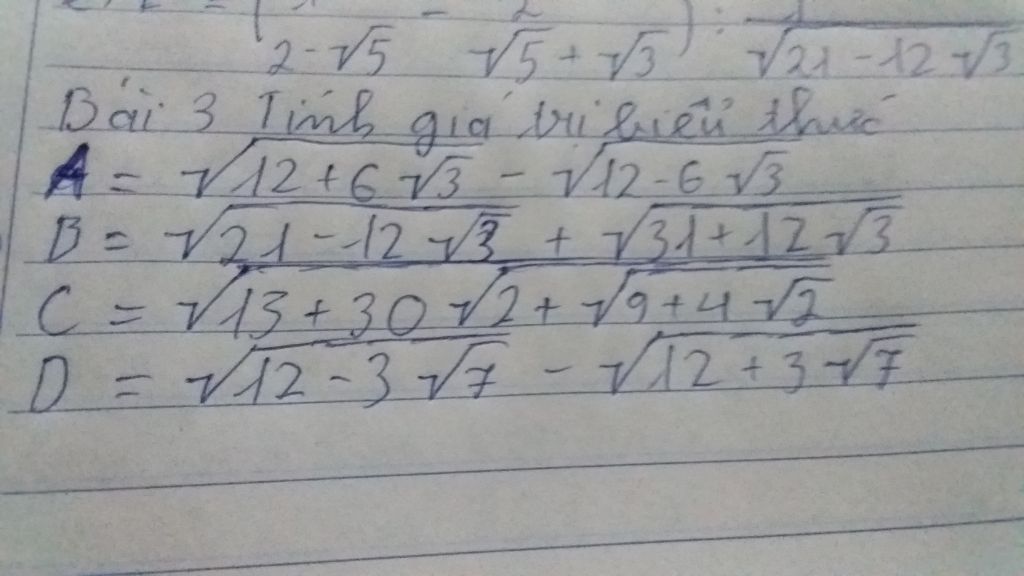 2 - √5 √5 + √3 ) : √21 - 12√3
Bài 3 Tính giá trị biểu thức
A = √(12 + 6√3) - √(12 - 6√3)
B = √(21 - 12√3) + √(31 + 12√3)
C = √(13 + 30√2 + √(9 + 4√2))
D = √(12 - 3√7) - √(12 + 3√7)